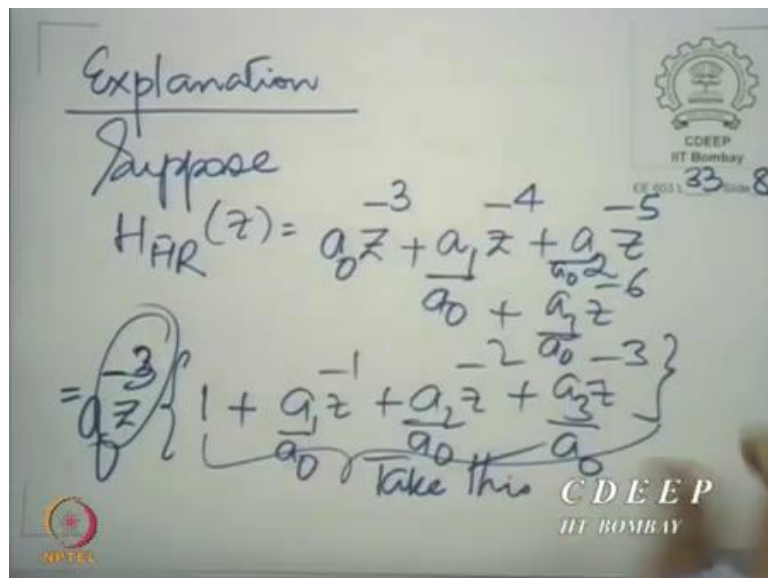 Explanation
Suppose
H_FIR(z) = a_0 z^-3 + a_1/a_0 z^-4 + a_2/a_0 z^-5
+ a_3/a_0 z^-6
= a_0 z^-3 { 1 + a_1/a_0 z^-1 + a_2/a_0 z^-2 + a_3/a_0 z^-3 }
Take this
CDEEP
IIT Bombay
EE 603 L 33 / Slide 8
CDEEP
IIT BOMBAY
NPTEL